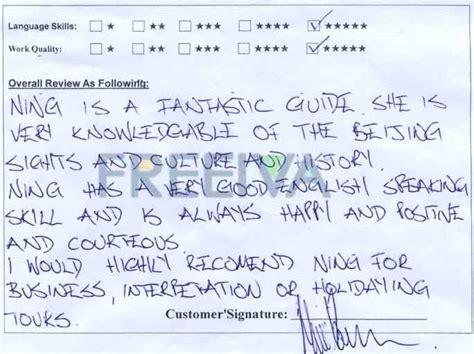 Language Skills: ★ ★★ ★★★ ★★★★ ★★★★★
Work Quality: ★ ★★ ★★★ ★★★★ ★★★★★
Overall Review As Following:
NING IS A FANTASTIC GUIDE SHE IS
VERY KNOWLEDGABLE OF THE BEIJING
SIGHTS AND CULTURE AND HISTORY.
FREEIVA
NING HAS A VERY GOOD ENGLISH SPEAKING
SKILL AND IS ALWAYS HAPPY AND POSTIVE
AND COURTEOUS.
I WOULD HIGHLY RECOMEND NING FOR
BUSINESS, INTERPETATION OR HOLIDAYING
TOURS.
Customer'Signature: